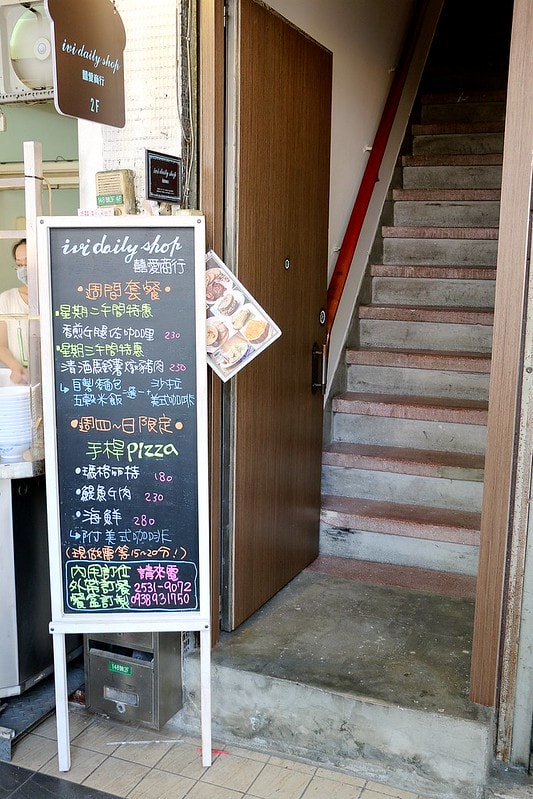 ivi daily shop
囍愛商行
2F
ivi daily shop
148號2F 4F
ivi daily shop
囍愛商行
•週間套餐•
•星期二午間特惠
香煎午腿佐咖哩 230
•星期三午間特惠
清酒馬鈴薯燉豬肉 250
↳自製麵包 選一 + 沙拉
五穀米飯 美式咖啡
•週四~日限定•
手桿pizza
•瑪格麗特 180
•鯷魚午肉 230
•海鮮 280
↳附美式咖啡
(現做需等15~20分!)
內用訂位 請來電
外帶訂餐 2531-9072
餐盒訂製 0938931750
148號2F